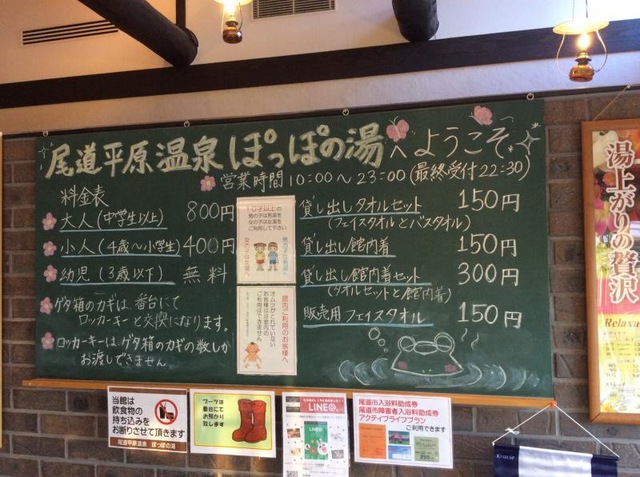 尾道平原温泉 ぽっぽの湯へようこそ
営業時間 10:00～23:00 (最終受付 22:30)
料金表
大人 (中学生以上) 800円
小人 (4歳～小学生) 400円
幼児 (3歳以下) 無料
ゲタ箱のカギは、番台にて
ロッカーキーと交換になります。
ロッカーキーは、ゲタ箱のカギの数しか
お渡しできません
貸し出しタオルセット 150円
(フェイスタオルとバスタオル)
貸し出し館内着 150円
貸し出し館内着セット 300円
(タオルセットと館内着)
販売用フェイスタオル 150円
館内ご利用のお客様へ
オムツがとれていない
お客様は浴室の
ご利用はできません
湯上がりの贅沢
Relaxa
当館は
飲食物の
持ち込みを
お断りさせて頂きます
尾道平原温泉 ぽっぽの湯
ブーツは
番台にて
お預かり
致します
LINE@
尾道市入浴料助成券
尾道市障害者入浴料助成券
アクティブライフプラン
ご利用できます